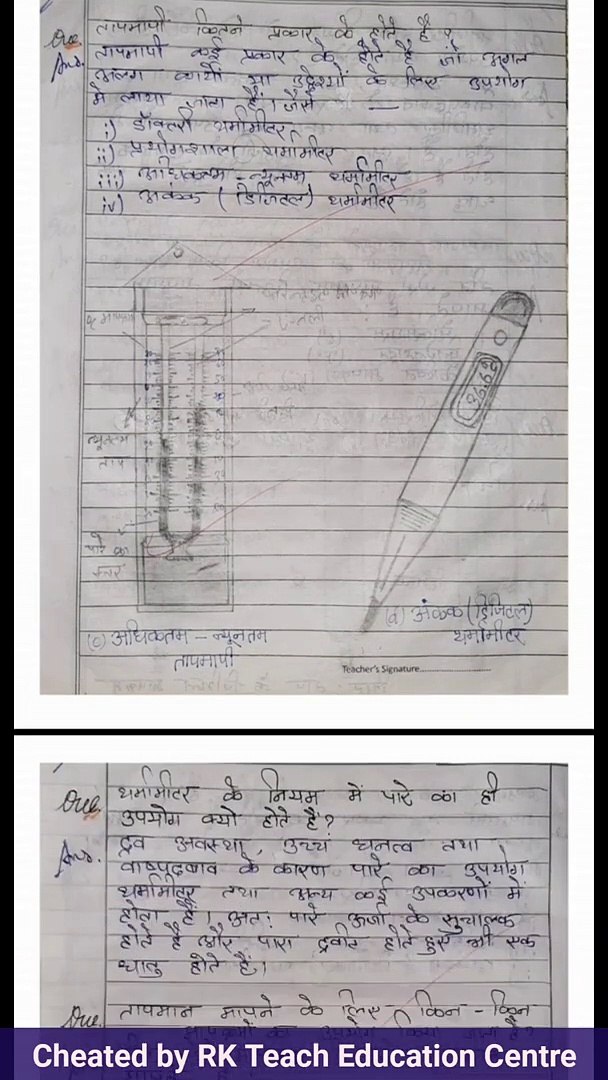 Que. तापमापी कितने प्रकार के होते है ?
Ans. तापमापी कई प्रकार के होते है जो अलग
अलग कार्यो या उद्देश्यों के लिए उपयोग
मे लाया जाता है। जैसे —
i) डॉक्टरी थर्मामीटर
ii) प्रयोगशाला थर्मामीटर
iii) अधिकतम - न्यूनतम थर्मामीटर
iv) अकंक (डिजिटल) थर्मामीटर
न्यूनतम
ताप
पारे का
स्तर
(c) अधिकतम - न्यूनतम
तापमापी
(d) अंकक (डिजिटल)
थर्मामीटर
Teacher's Signature
Que. थर्मामीटर के नियम में पारे का ही
उपयोग क्यो होते है?
Ans. द्रव अवस्था, उच्च घनत्व तथा
वाष्पदबाव के कारण पारे का उपयोग
थर्मामीटर तथा अन्य कई उपकरणों में
होता है। अतः पारे ऊर्जा के सुचालक
होते है और पारा द्रवीत होते हुए भी एक
धातु होते है।
Que. तापमान मापने के लिए किन - किन
Cheated by RK Teach Education Centre